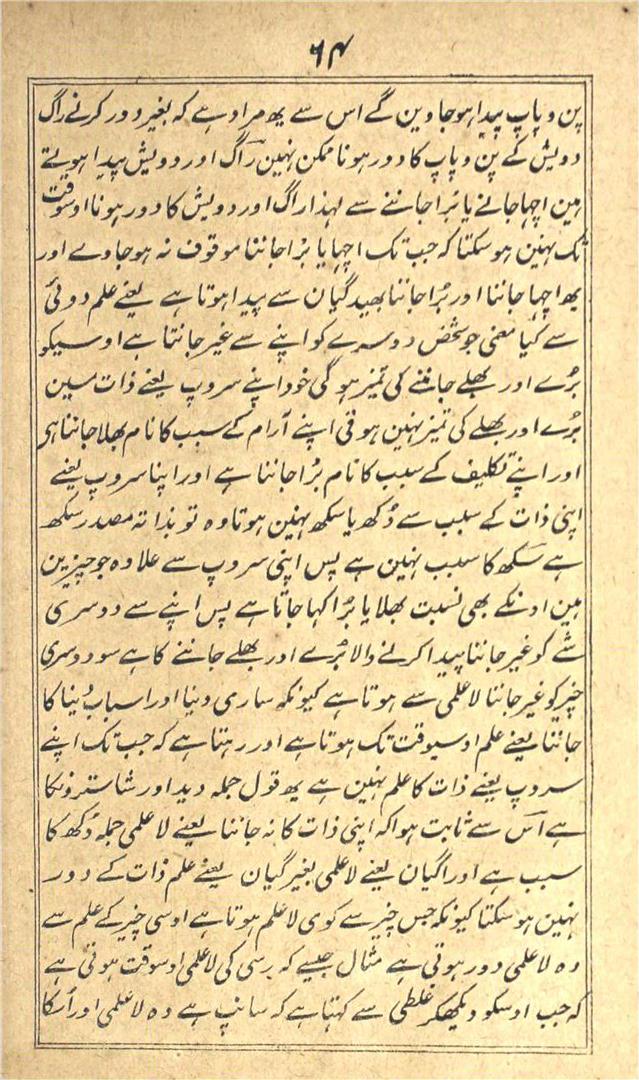 ۶۴
پن و پاپ پیدا ہوجاوین گے اس سے یھ مراد ہے کہ بغیر دور کرنے راگ
دویش کے پن و پاپ کا دور ہونا ممکن نہین راگ اور دویش پیدا ہوتے
ہین اچہا جاننے یا بُرا جاننے سے لہذا راگ اور دویش کا دور ہونا اوسوقت
تک نہین ہوسکتا کہ جب تک اچہا یا بُرا جاننا موقوف نہ ہوجاوے اور
یھ اچہا جاننا اور بُرا جاننا بھید گیان سے پیدا ہوتا ہے یعنے علم دوئی
سے کیا معنی جو شخص دوسرے کو اپنے سے غیر جانتا ہے اوسیکو
بُرے اور بھلے جاننے کی تمیز ہوگی خود اپنے سروپ یعنے ذات مین
بُرے اور بھلے کی تمیز نہین ہوتی اپنے آرام کے سبب کا نام بھلا جاننا ہی
اور اپنے تکلیف کے سبب کا نام بُرا جاننا ہے اور اپنا سروپ یعنے
اپنی ذات کے سبب سے دُکھ یا سکھ نہین ہوتا وہ تو بذاتہ مصدر سکھ
ہے سکھ کا سبب نہین ہے پس اپنی سروپ سے علاوہ جو چیزین
ہین اونکے بھی نسبت بھلا یا بُرا کہا جاتا ہے پس اپنے سے دوسری
شے کو غیر جاننا پیدا کرنے والا بُرے اور بھلے جاننے کا ہے سو دوسری
چیز کو غیر جاننا لاعلمی سے ہوتا ہے کیونکہ ساری دنیا اور اسباب دُنیا کا
جاننا یعنے علم اوسیوقت تک ہوتا ہے اور رہتا ہے کہ جب تک اپنے
سروپ یعنے ذات کا علم نہین ہے یھ قول جملہ وید اور شاسترونکا
ہے اس سے ثابت ہوا کہ اپنی ذات کا نہ جاننا یعنے لاعلمی جملہ دُکھ کا
سبب ہے اور اگیان یعنے لاعلمی بغیر گیان یعنے علم ذات کے دور
نہین ہوسکتا کیونکہ جس چیز سے کوی لاعلم ہوتا ہے اوسی چیز کے علم سے
وہ لاعلمی دور ہوتی ہے مثال جیسے کہ رسی کی لاعلمی اوسوقت ہوتی ہے
کہ جب اوسکو دیکھکر غلطی سے کہتا ہے کہ سانپ ہے وہ لاعلمی اور اُسکا